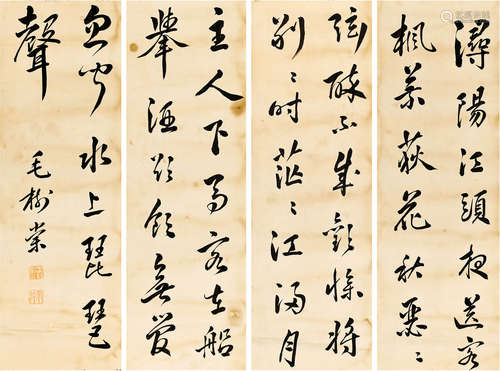 潯陽江頭夜送客
楓葉荻花秋瑟〻
弦醉不成歡慘將
別〻時茫〻江浸月
主人下馬客在船
舉酒欲飲無管
忽聞水上琵琶
聲
毛樹棠